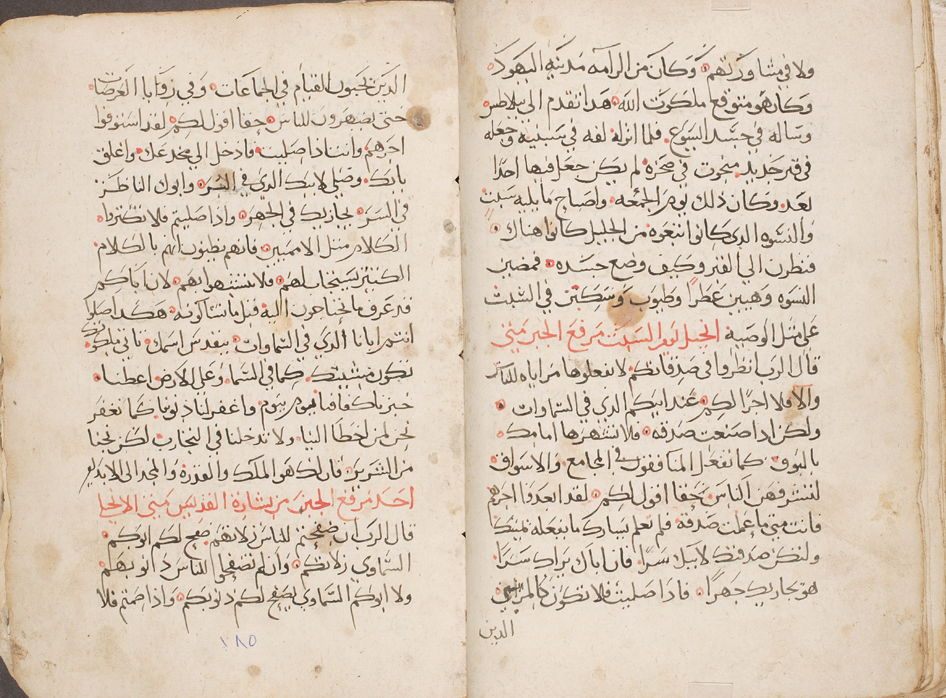 ولا في مشاورتهم وكان من الرامه مدينه اليهود
وكان هو متوقع ملكوت الله هدا تقدم الى بيلاطس
وساله في جسد ايسوع فلما انزله لفه في سبنيه وجعله
في قبر جديد منحوت في صخره لم يكن جعل فيها احدا
بعد وكان دلك يوم الجمعه واصباح ما يليه سبت
والنسوه الدي كانوا اتبعوه من الجليل كانوا هناك
فنظرن الي القبر وكيف وضع جسده فمضين
النسوه وهيين عطرا وطيوب وسكتن في السبت
على مثل الوصية انجيل يوم السبت مرفع الجبن متى
قال الرب انظروا في صدقاتكم لا تفعلوها مراياه للناس
والا فلا اجرا لكم عند ابيكم الدي في السماوات
ولكن ادا صنعت صدقه فلا تشهرها امامك
بالبوق كما تفعل المنافقون في المجامع والاسواق
حقا اقول لكم لقد اجرهم
فانت متى ما عملت صدقه فلا تعلم يسارك ما تفعله يمينك
ولتكن صدقتك سرا فان اباك يراك سرا
هو يجازيك جهرا فادا صليت فلا تكون كالمرايين
الدين
الدين يحبون القيام في الجماعات وفي زوايا العرصات
حتى يضهرون للناس حقا اقول لكم لقد استوفوا
اجرهم وانت ادا صليت فادخل الي مخدعك واغلق
بابك وصلي لابيك الدي في السر وابوك الناظر
في السر يجازيك في الجهر وادا صليتم فلا تكتروا
الكلام متل الامميين فانهم يظنون انهم بالكلام
الكتير يستجاب لهم فلا تتشبهوا بهم لان اباكم
قد عرف ما تحتاجون اليه قبل ما تسالونه هكدا صلوا
انتم ابانا الدي في السماوات يتقدس اسمك تاتي ملكوتك
تكون مشيتك كما في السما وعلى الارض اعطنا
خبزنا كفافنا يوم بيوم واغفر لنا دنوبنا كما نغفر
نحن لمن اخطا الينا ولا تدخلنا في التجارب لكن نجنا
من الشرير فان لك هو الملك والقدرة والمجد الى الابد
احد مرفع الجبن من بشارة القديس متى الانجيلي
قال الرب ان صفحتم للناس زلاتهم صفح لكم ابوكم
السماوي زلاتكم وان لم تصفحوا للناس دنوبهم
ولا ابوكم السماوي يصفح لكم دنوبكم وادا صمتم فلا
١٨٥